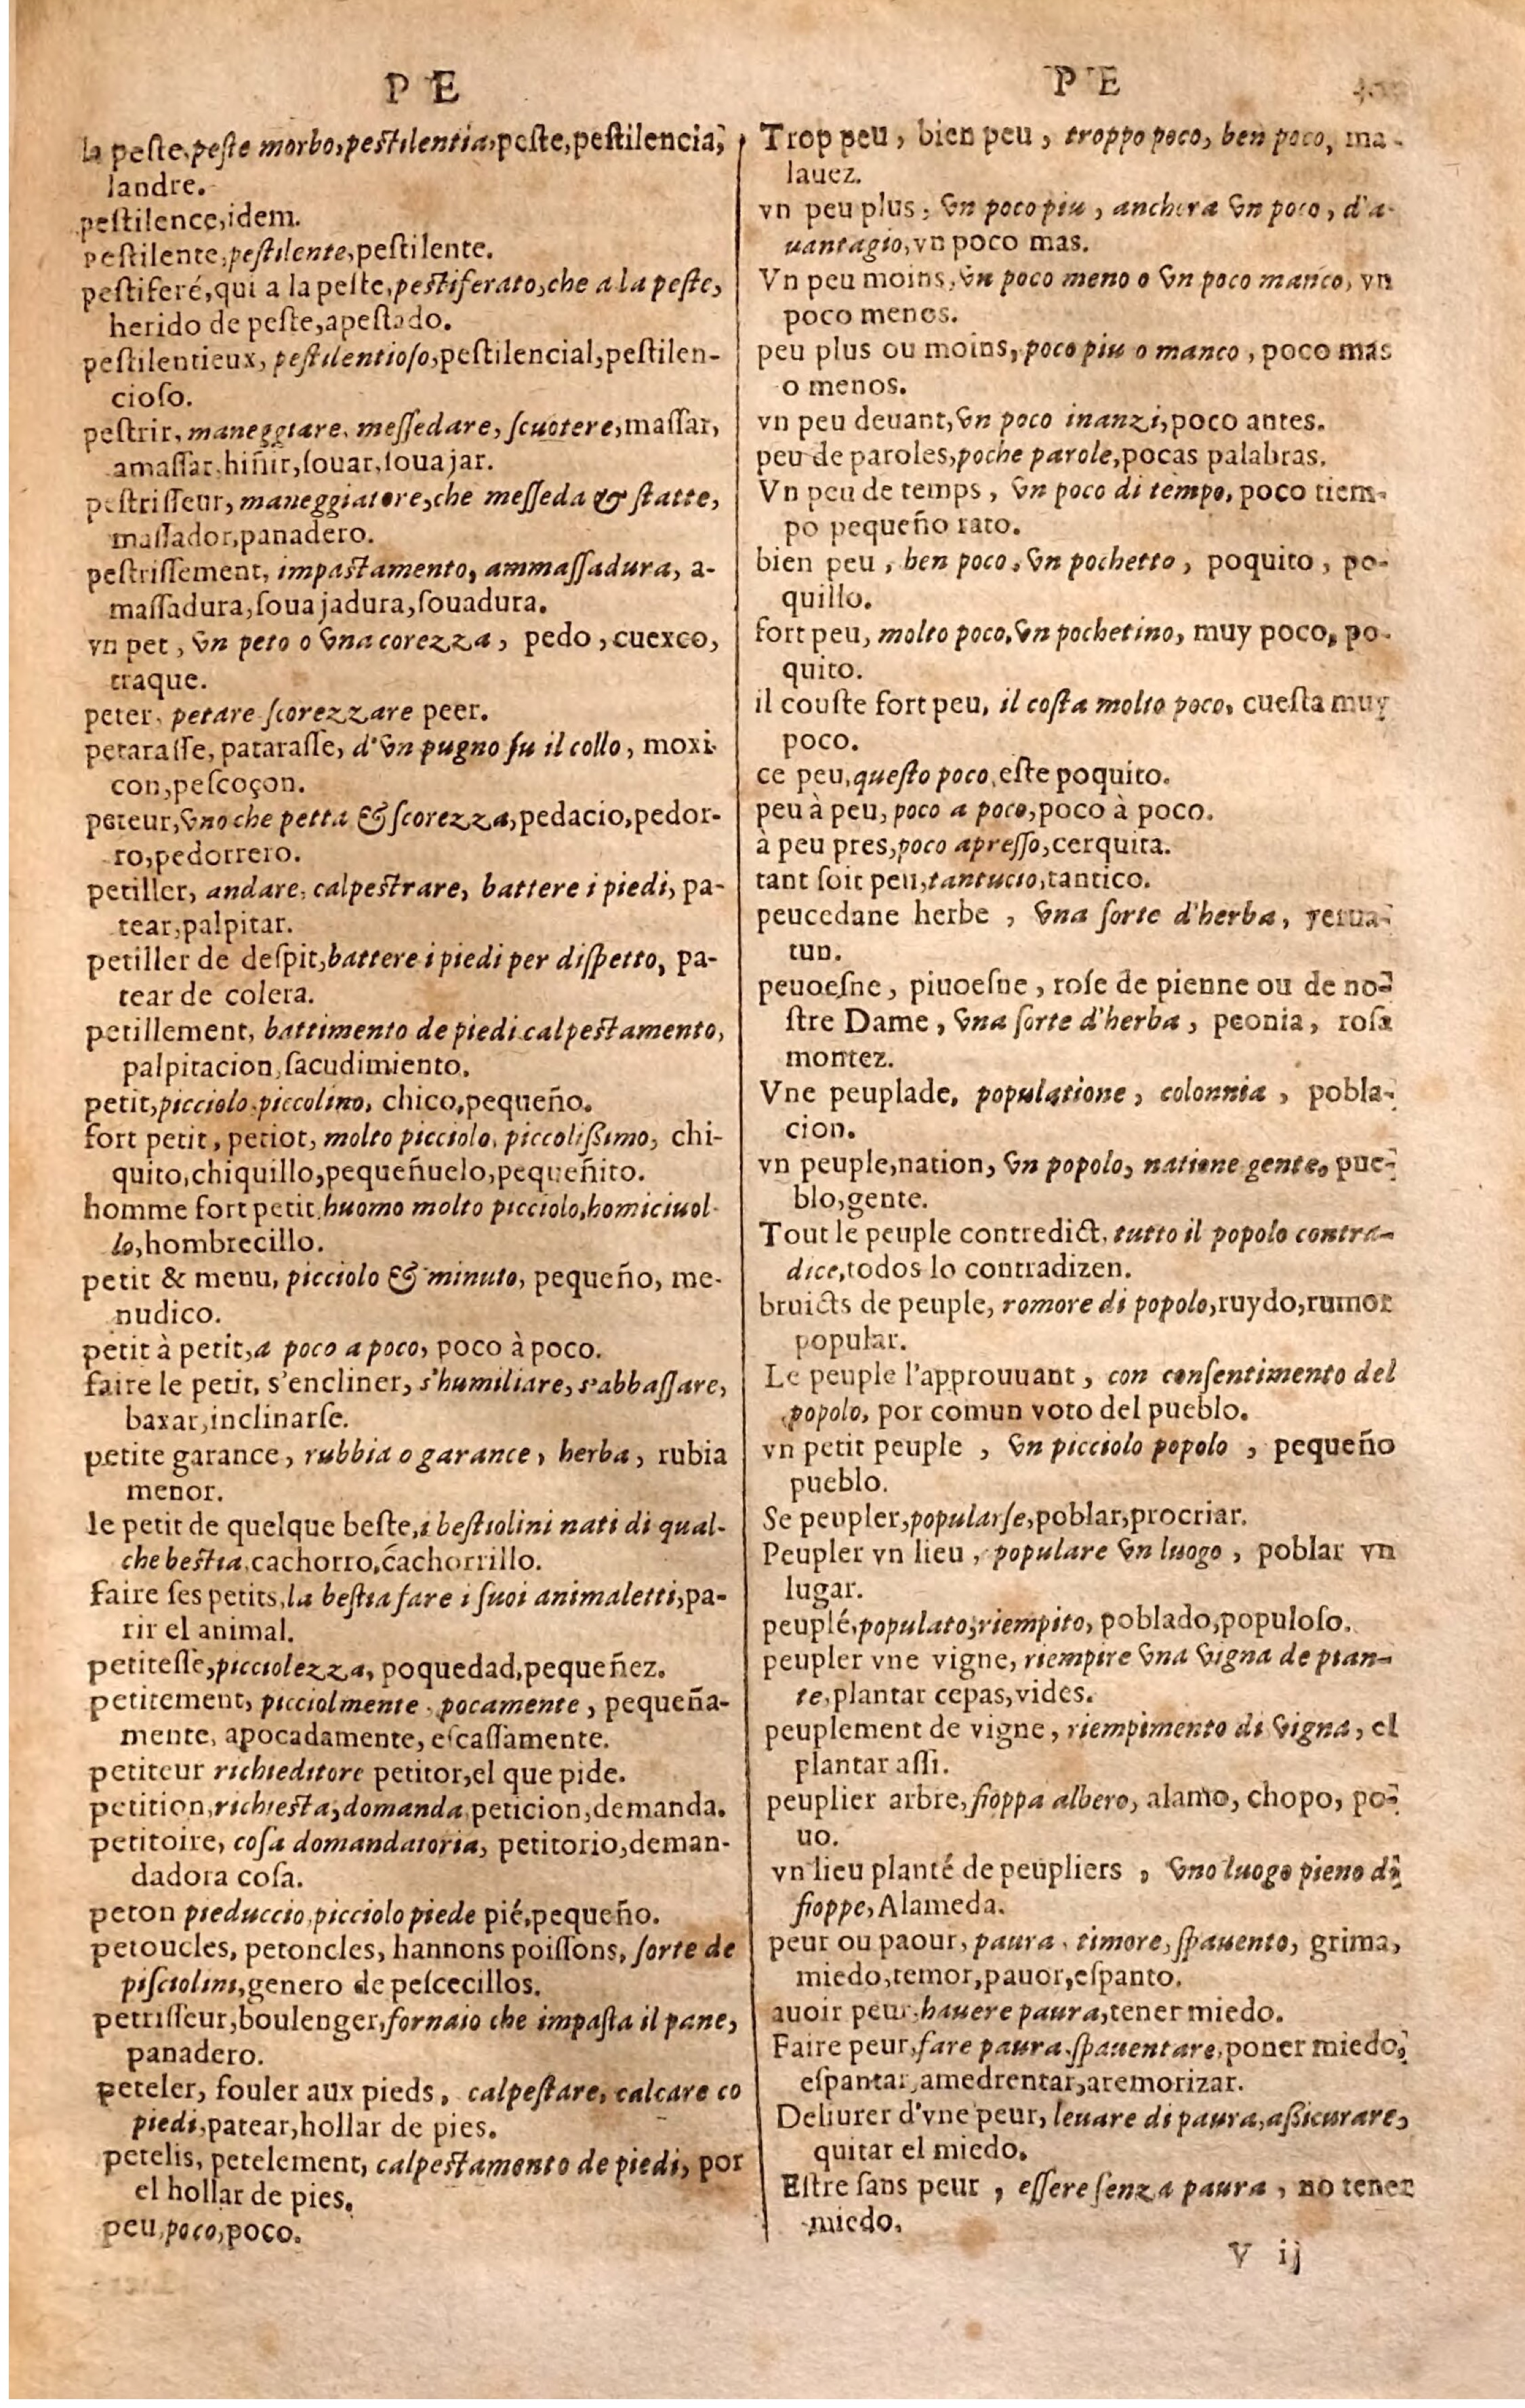 P E
la peſte, peſte morbo, peſtilentia, peſte, peſtilencia,
landre.
peſtilence, idem.
peſtilente, peſtilente, peſtilente.
peſtiferé, qui a la peſte, peſtiferato, che a la peſte,
herido de peſte, apeſtado.
peſtilentieux, peſtilentioſo, peſtilencial, peſtilen-
cioſo.
peſtrir, maneggiare, meſſedare, ſcuotere, maſſar,
amaſſar, hiñir, ſouar, ſouajar.
peſtriſſeur, maneggiatore, che meſſeda & ſtatte,
maſſador, panadero.
peſtriſſement, impaſtamento, ammaſſadura, a-
maſſadura, ſouajadura, ſouadura.
vn pet, vn peto o vna corezza, pedo, cuexco,
traque.
peter, petare ſcorezzare peer.
petaraſſe, pataraſſe, d'vn pugno ſu il collo, moxi-
con, peſcoçon.
peteur, vno che petta & ſcorezza, pedacio, pedor-
ro, pedorrero.
petiller, andare, calpeſtrare, battere i piedi, pa-
tear, palpitar.
petiller de deſpit, battere i piedi per diſpetto, pa-
tear de colera.
petillement, battimento de piedi calpeſtamento,
palpitacion, ſacudimiento.
petit, picciolo, piccolino, chico, pequeño.
fort petit, petiot, molto picciolo, piccolißimo, chi-
quito, chiquillo, pequeñuelo, pequeñito.
homme fort petit, huomo molto picciolo, homiciuol-
lo, hombrecillo.
petit & menu, picciolo & minuto, pequeño, me-
nudico.
petit à petit, a poco a poco, poco à poco.
faire le petit, s'encliner, s'humiliare, s'abbaſſare,
baxar, inclinarſe.
petite garance, rubbia o garance, herba, rubia
menor.
le petit de quelque beſte, i beſtiolini nati di qual-
che beſtia, cachorro, cachorrillo.
faire ſes petits, la beſtia fare i ſuoi animaletti, pa-
rir el animal.
petiteſſe, picciolezza, poquedad, pequeñez.
petitement, picciolmente, pocamente, pequeña-
mente, apocadamente, eſcaſſamente.
petiteur richieditore petitor, el que pide.
petition, richieſta, domanda, peticion, demanda.
petitoire, coſa domandatoria, petitorio, deman-
dadora coſa.
peton pieduccio, picciolo piede pié, pequeño.
petoucles, petoncles, hannons poiſſons, ſorte de
piſciolini, genero de peſcecillos.
petriſſeur, boulenger, fornaio che impaſta il pane,
panadero.
peteler, fouler aux pieds, calpeſtare, calcare co
piedi, patear, hollar de pies.
petelis, petelement, calpeſtamento de piedi, por
el hollar de pies.
peu, poco, poco.
P E
Trop peu, bien peu, troppo poco, ben poco, ma-
lauez.
vn peu plus, vn poco piu, anchora vn poco, d'a-
uantagio, vn poco mas.
Vn peu moins, vn poco meno o vn poco manco, vn
poco menos.
peu plus ou moins, poco piu o manco, poco mas
o menos.
vn peu deuant, vn poco inanzi, poco antes.
peu de paroles, poche parole, pocas palabras.
Vn peu de temps, vn poco di tempo, poco tiem-
po pequeño rato.
bien peu, ben poco, vn pochetto, poquito, po-
quillo.
fort peu, molto poco, vn pochetino, muy poco, po-
quito.
il couſte fort peu, il coſta molto poco, cueſta muy
poco.
ce peu, queſto poco, eſte poquito.
peu à peu, poco a poco, poco à poco.
à peu pres, poco apreſſo, cerquita.
tant ſoit peu, tantucio, tantico.
peucedane herbe, vna ſorte d'herba, yerua-
tun.
peuoeſne, piuoeſne, roſe de pienne ou de no-
ſtre Dame, vna ſorte d'herba, peonia, roſa
montez.
Vne peuplade, populatione, colonnia, pobla-
cion.
vn peuple, nation, vn popolo, natione gente, pue-
blo, gente.
Tout le peuple contredict, tutto il popolo contra-
dice, todos lo contradizen.
bruicts de peuple, romore di popolo, ruydo, rumor
popular.
Le peuple l'approuuant, con conſentimento del
popolo, por comun voto del pueblo.
vn petit peuple, vn picciolo popolo, pequeño
pueblo.
Se peupler, popularſe, poblar, procriar.
Peupler vn lieu, populare vn luogo, poblar vn
lugar.
peuplé, populato, riempito, poblado, populoſo.
peupler vne vigne, riempire vna vigna de pian-
te, plantar cepas, vides.
peuplement de vigne, riempimento di vigna, el
plantar aſſi.
peuplier arbre, fioppa albero, alamo, chopo, po-
uo.
vn lieu planté de peupliers, vno luogo pieno di
fioppe, Alameda.
peur ou paour, paura, timore, ſpauento, grima,
miedo, temor, pauor, eſpanto.
auoir peur, hauere paura, tener miedo.
Faire peur, fare paura, ſpauentare, poner miedo,
eſpantar, amedrentar, atemorizar.
Deliurer d'vne peur, leuare di paura, aßicurare,
quitar el miedo.
Eſtre ſans peur, eſſere ſenza paura, no tener
miedo.
V ij